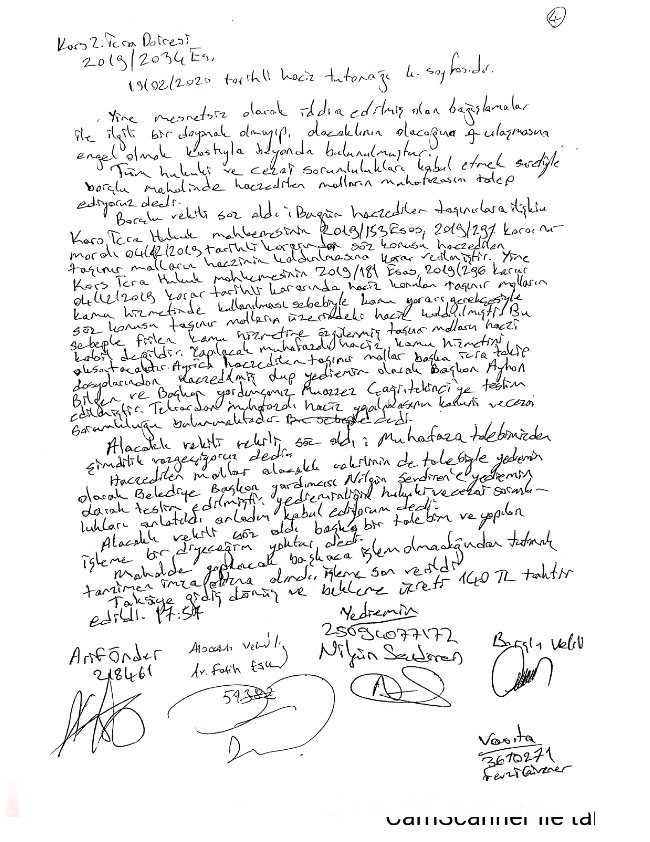 4
Kars 2. İcra Dairesi
2019/2034 Es.
19/02/2020 tarihli haciz tutanağı 4. sayfasıdır.
Yine mesnetsiz olarak iddia edilmiş olan bağışlamalar
ile ilgili bir dayanak olmayıp, alacaklının alacağına ulaşmasına
engel olmak kastıyla beyanda bulunulmuştur.
Tüm hukuki ve cezai sorumlulukları kabul etmek suretiyle
borçlu mahalinde haczedilen malların muhafazasını talep
ediyoruz dedi.
Borçlu vekili söz aldı: Bugün haczedilen taşınırlara ilişkin
Kars İcra Hukuk mahkemesinin 2019/153 Esas, 2019/297 karar nu-
maralı 04/12/2019 tarihli kararından söz konusu haczedilen
taşınır malların haczinin kaldırılmasına karar verilmiştir. Yine
Kars İcra Hukuk mahkemesinin 2019/181 Esas, 2019/296 karar
04/12/2019 karar tarihli kararında haciz konulan taşınır malların
kamu hizmetinde kullanılması sebebiyle kamu yararı gerekçesiyle
söz konusu taşınır malların üzerindeki haciz kaldırılmıştır. Bu
sebeple fiilen kamu hizmetine özgülenmiş taşınır malların haczi
kabil değildir. Yapılacak muhafazalı haciz kamu hizmetini
aksatacaktır. Ayrıca haczedilen taşınır mallar başka icra takip
dosyalarından haczedilmiş olup yediemin olarak Başkan Ayhan
Bilgen ve Başkan yardımcımız Muazzez Çağrıtekinci'ye teslim
edilmiştir. Tekrardan muhafazalı haciz yapılmasının kanuni ve cezai
sorumluluğu bulunmaktadır. dedi.
Alacaklı vekili söz aldı: Muhafaza talebimizden
şimdilik vazgeçiyoruz dedi.
Haczedilen mallar alacaklı vekilinin de talebiyle yediemin
olarak Belediye Başkan yardımcısı Nilgün Serdiren'e yediemin
olarak teslim edilmiştir. yedieminliğin hukuki ve cezai sorum-
lulukları anlatıldı anladım kabul ediyorum dedi.
Alacaklı vekili söz aldı başka bir talebim ve yapılan
işleme bir diyeceğim yoktur dedi.
Mahalde yapılacak başkaca işlem olmadığından tutanak
tanzimen imza altına alındı. işleme son verildi
Taksiye gidiş dönüş ve bekleme ücreti 140 TL taktir
edildi. 17:57
Yediemin
25094077172
Nilgün Serdiren
Arif Önder
218461
Alacaklı Vekili
Av. Fatih
Borçlu Vekili
Vasıta
3610271
CamScanner ile ta